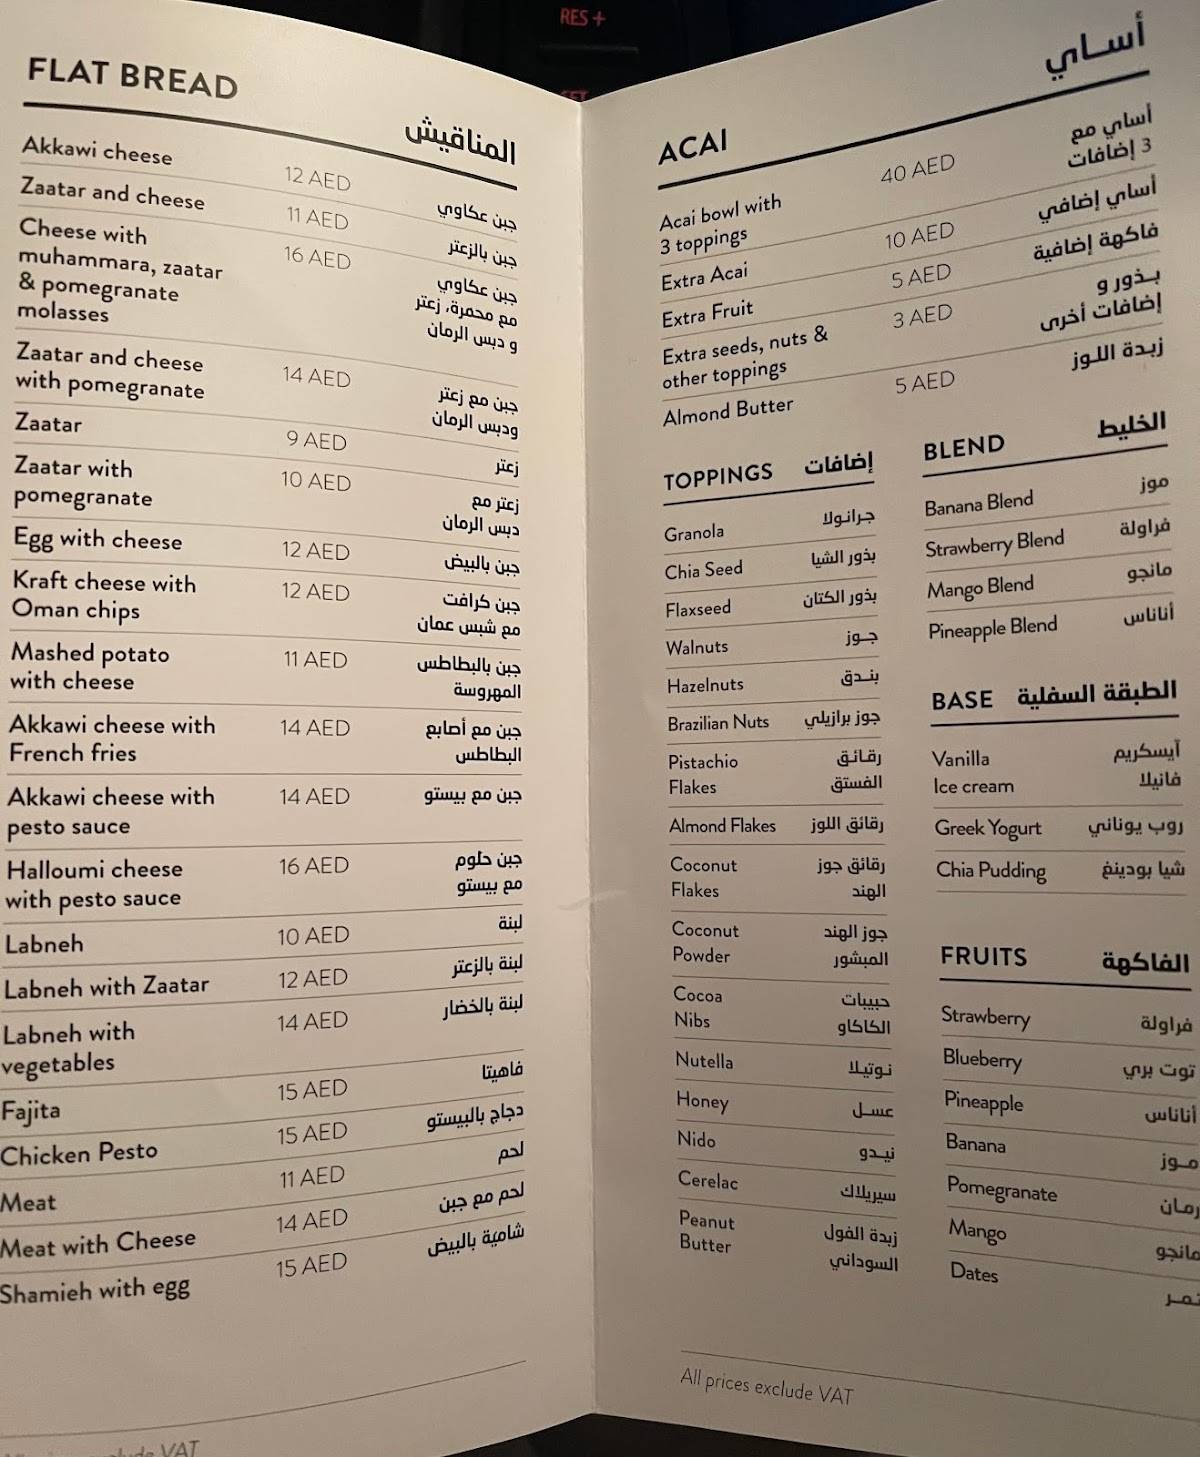 RES +
FLAT BREAD
المناقيش
Akkawi cheese 12 AED جبن عكاوي
Zaatar and cheese 11 AED جبن بالزعتر
Cheese with 16 AED جبن عكاوي
muhammara, zaatar مع محمرة، زعتر
& pomegranate و دبس الرمان
molasses
Zaatar and cheese 14 AED جبن مع زعتر
with pomegranate ودبس الرمان
Zaatar 9 AED زعتر
Zaatar with 10 AED زعتر مع
pomegranate دبس الرمان
Egg with cheese 12 AED جبن بالبيض
Kraft cheese with 12 AED جبن كرافت
Oman chips مع شبس عمان
Mashed potato 11 AED جبن بالبطاطس
with cheese المهروسة
Akkawi cheese with 14 AED جبن مع أصابع
French fries البطاطس
Akkawi cheese with 14 AED جبن مع بيستو
pesto sauce
Halloumi cheese 16 AED جبن حلوم
with pesto sauce مع بيستو
Labneh 10 AED لبنة
Labneh with Zaatar 12 AED لبنة بالزعتر
Labneh with 14 AED لبنة بالخضار
vegetables
Fajita 15 AED فاهيتا
Chicken Pesto 15 AED دجاج بالبيستو
Meat 11 AED لحم
Meat with Cheese 14 AED لحم مع جبن
Shamieh with egg 15 AED شامية بالبيض
VAT
ACAI أساي
Acai bowl with 40 AED أساي مع
3 toppings 3 إضافات
Extra Acai 10 AED أساي إضافي
Extra Fruit 5 AED فاكهة إضافية
Extra seeds, nuts & 3 AED بذور و
other toppings إضافات أخرى
Almond Butter 5 AED زبدة اللوز
TOPPINGS إضافات
Granola جرانولا
Chia Seed بذور الشيا
Flaxseed بذور الكتان
Walnuts جوز
Hazelnuts بندق
Brazilian Nuts جوز برازيلي
Pistachio رقائق
Flakes الفستق
Almond Flakes رقائق اللوز
Coconut رقائق جوز
Flakes الهند
Coconut جوز الهند
Powder المبشور
Cocoa حبيبات
Nibs الكاكاو
Nutella نوتيلا
Honey عسل
Nido نيدو
Cerelac سيريلاك
Peanut زبدة الفول
Butter السوداني
BLEND الخليط
Banana Blend موز
Strawberry Blend فراولة
Mango Blend مانجو
Pineapple Blend أناناس
BASE الطبقة السفلية
Vanilla آيسكريم
Ice cream فانيلا
Greek Yogurt روب يوناني
Chia Pudding شيا بودينغ
FRUITS الفاكهة
Strawberry فراولة
Blueberry توت بري
Pineapple أناناس
Banana موز
Pomegranate رمان
Mango مانجو
Dates تمر
All prices exclude VAT